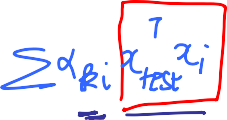 ∑α_{ki} x_{test}^T x_i